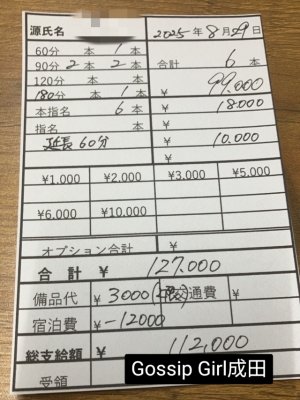 源氏名
2025年8月29日
60分 本 1本
90分 2本 2本
合計 6本
120分 本 本
¥ 99.000
180分 本 1本
本指名 6本
¥ 18.000
指名 本
¥
延長60分
¥ 10.000
¥
¥1,000 ¥2,000 ¥3,000 ¥5,000
¥6,000 ¥10,000
オプション合計 ¥
合計 ¥ 127.000
備品代 ¥3000 交通費 ¥
宿泊費 ¥-12000
総支給額 ¥ 112,000
受領
Gossip Girl成田